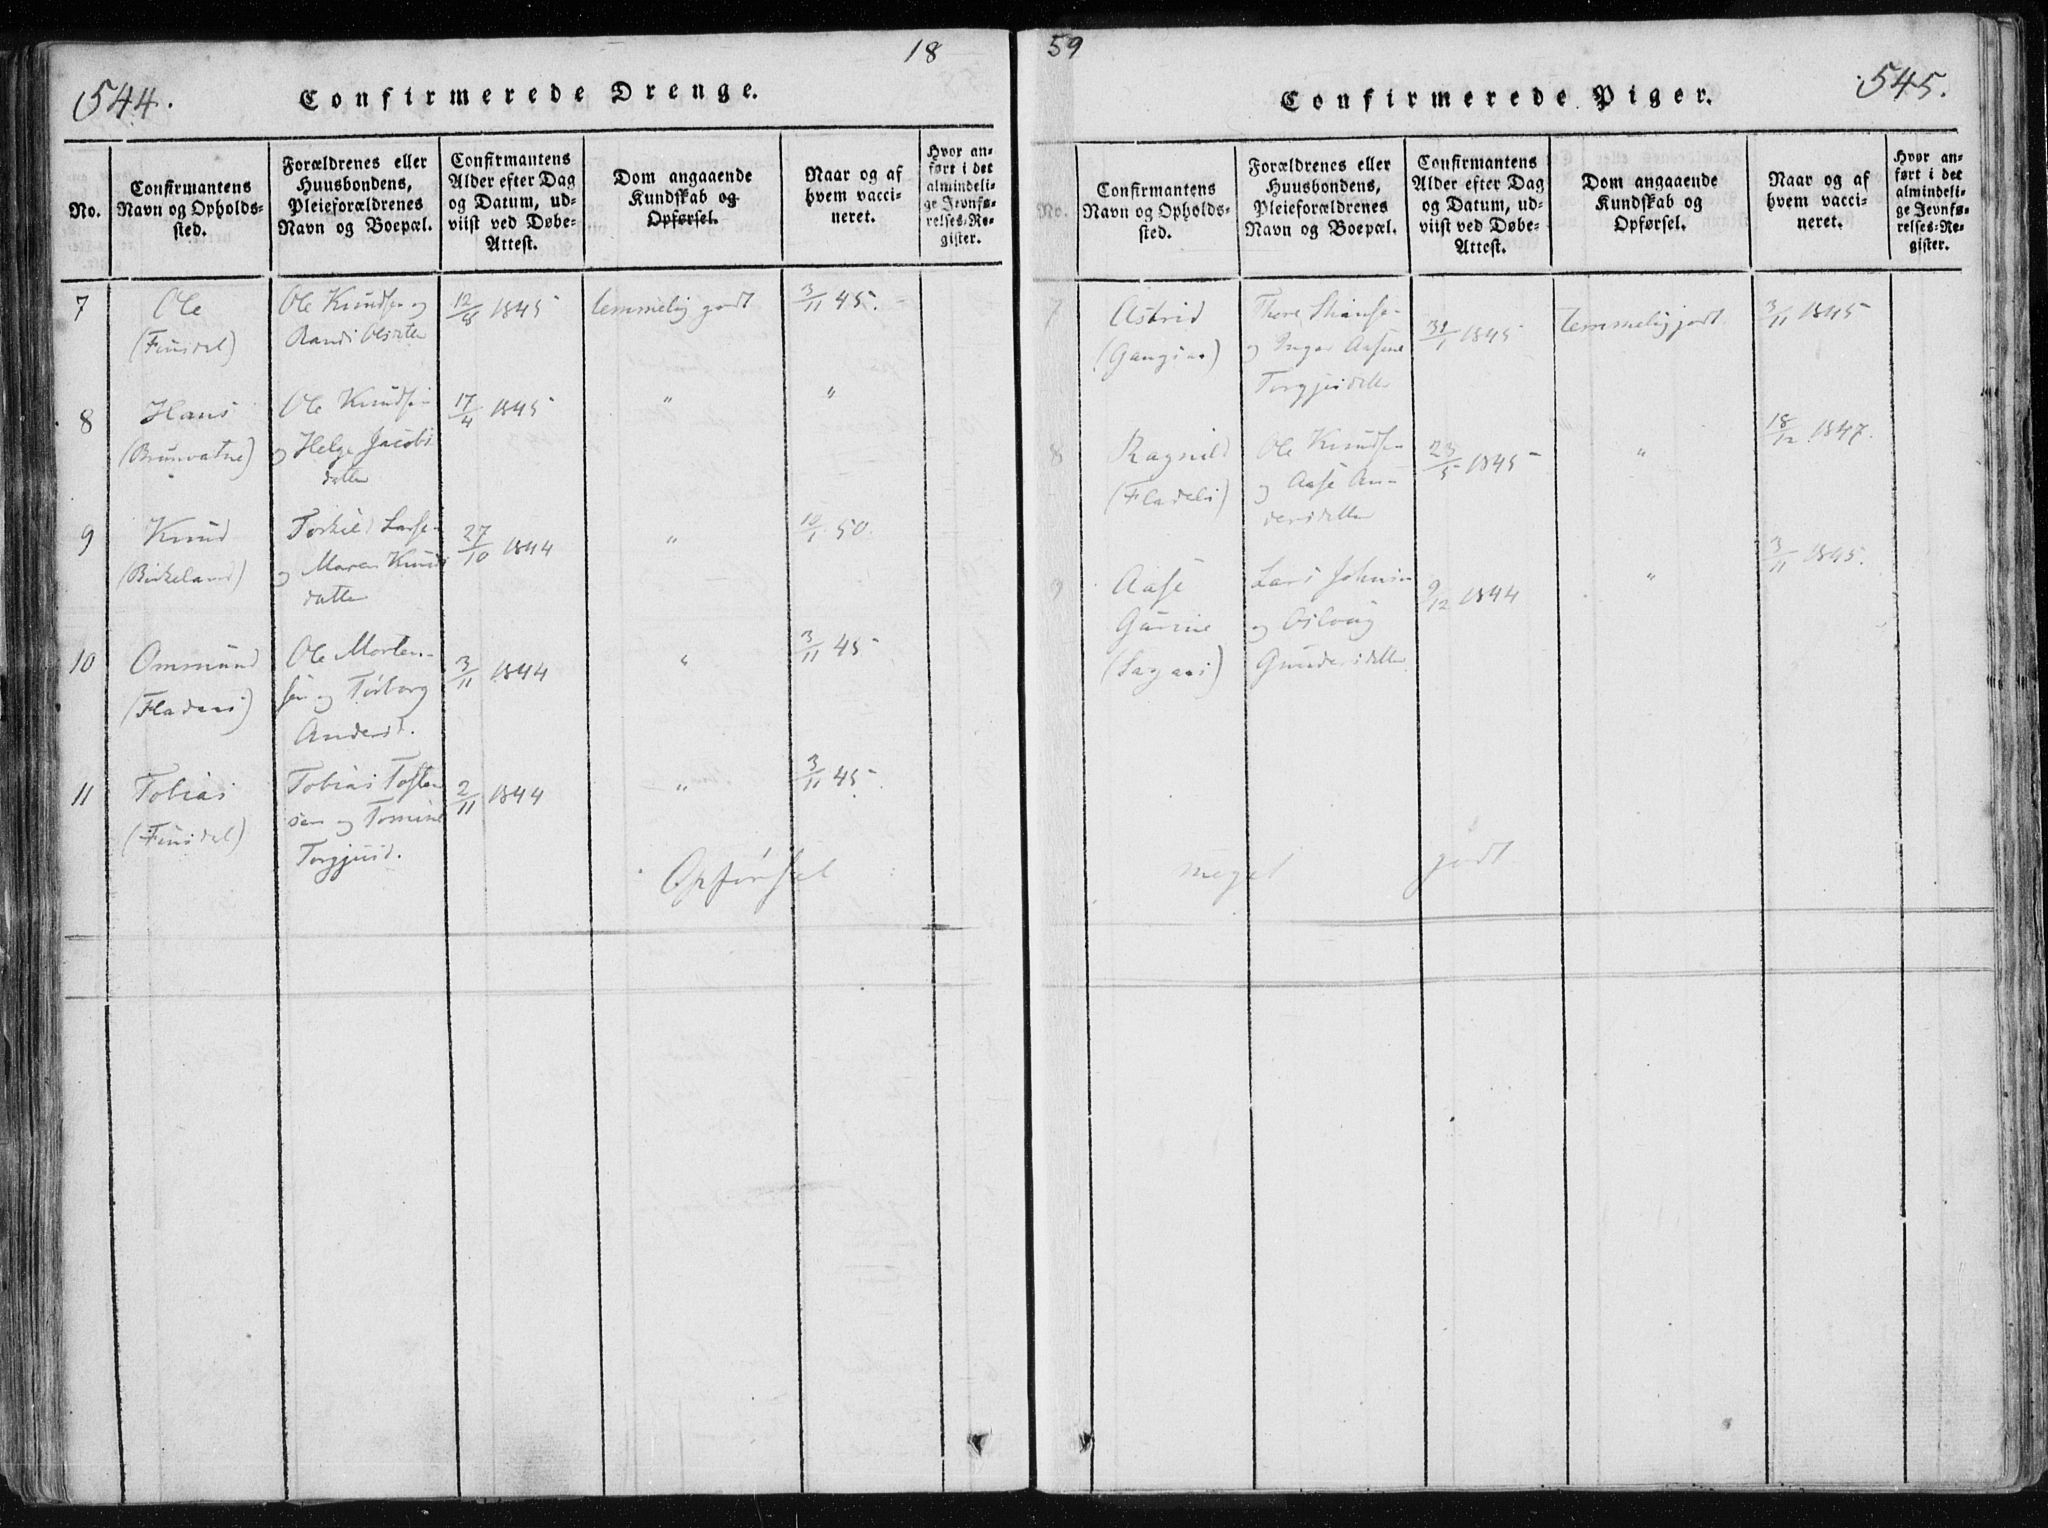 18
59
544.
Confirmerede Drenge.
No.
Confirmantens
Navn og Opholds-
sted.
Forældrenes eller
Huusbondens,
Pleieforældrenes
Navn og Boepæl.
Confirmantens
Alder efter Dag
og Datum, ud-
viist ved Døbe-
Attest.
Dom angaaende
Kundskab og
Opførsel.
Naar og af
hvem vacci-
neret.
Hvor an-
ført i det
almindeli-
ge Jevnfø-
relses-Re-
gister.
7
Ole
(Finsdal)
Ole Knudsen og
Randi Olsdatter
12/8 1845
temmelig godt
3/11 45.
8
Hans
(Brunvatne)
Ole Knudsen
og Helge Jacobs
datter
17/4 1845
"
"
9
Knud
(Birkeland)
Torkild Larsen
og Maren Knuds
datter
27/10 1844
"
10/1 50.
10
Ommund
Ole Morten-
sen og Torborg
Andersd.
3/11 1844
"
3/11 45
11
Tobias
(Finsdal)
Tobias Tosten
sen og Tomine
Torgjusd.
2/11 1844
"
3/11 45
Opførsel
545.
Confirmerede Piger.
No.
Confirmantens
Navn og Opholds-
sted.
Forældrenes eller
Huusbondens,
Pleieforældrenes
Navn og Boepæl.
Confirmantens
Alder efter Dag
og Datum, ud-
viist ved Døbe-
Attest.
Dom angaaende
Kundskab og
Opførsel.
Naar og af
hvem vacci-
neret.
Hvor an-
ført i det
almindeli-
ge Jevnfø-
relses-Re-
gister.
7
Astrid
og Inger Aasene
Torgjusdatter
31/1 1845
temmelig godt
3/11 1845
8
Ragnild
Ole Knudsen
og Aase An-
dersdatter
23/5 1845
"
18/12 1847.
9
Aase
Gurine
Lars Johnsen
og Osloug
Gundersdatter
9/12 1844
"
3/11 1845.
meget godt